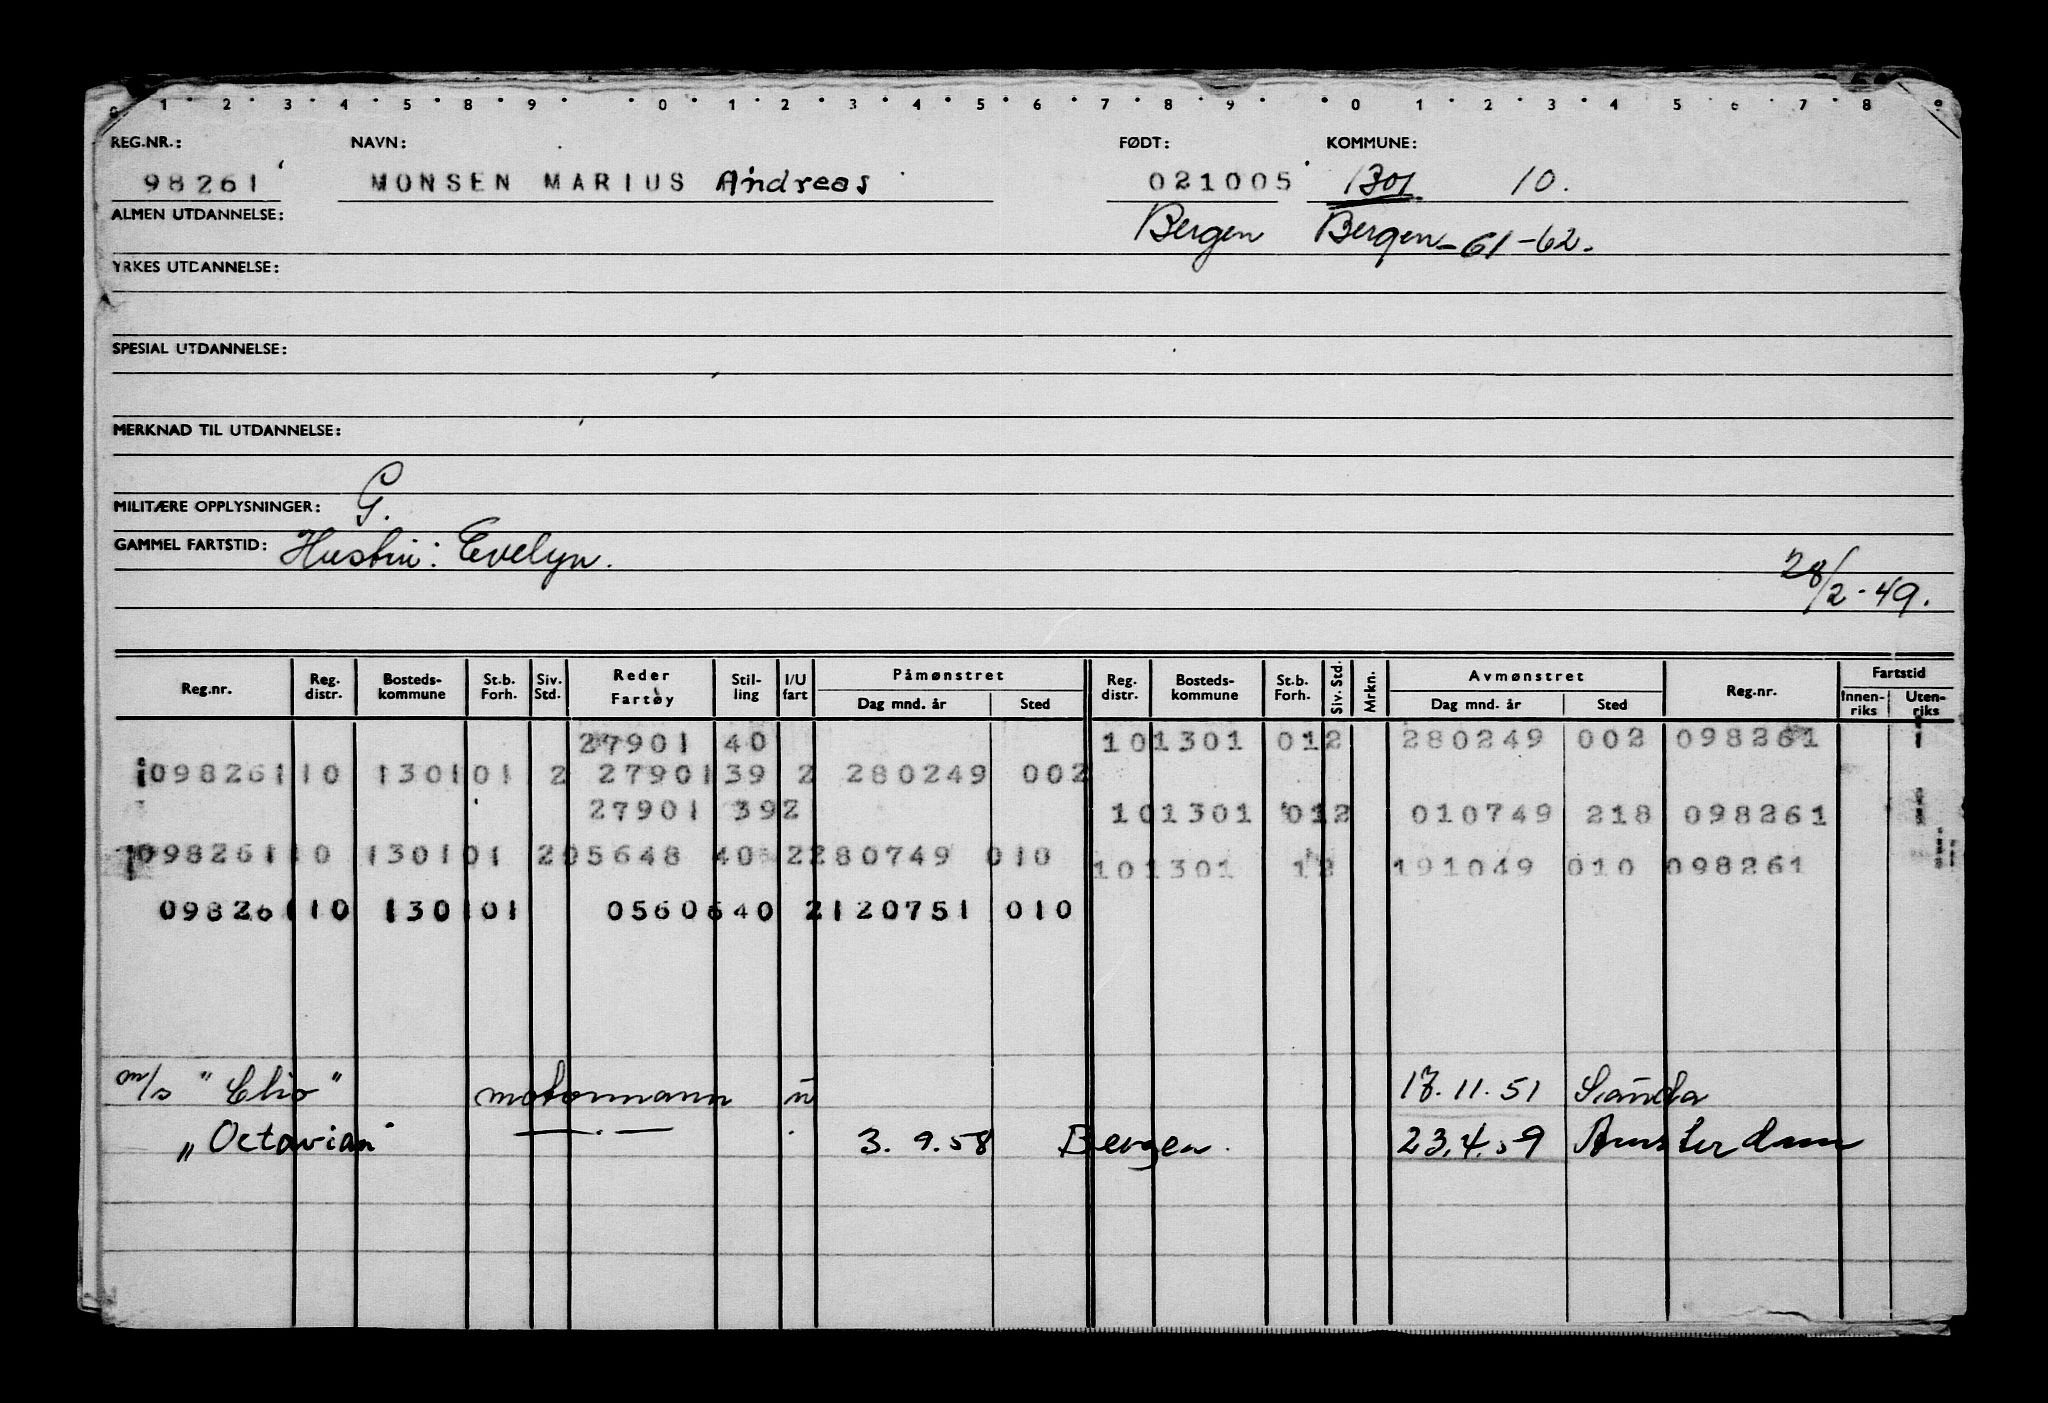 0 1 2 3 4 5 6 7 8 9 0 1 2 3 4 5 6 7 8 9 0 1 2 3 4 5 6 7 8 9
REG.NR.: NAVN: FØDT: KOMMUNE:
98261 MONSEN MARIUS Andreas 021005 1301 10.
ALMEN UTDANNELSE: Bergen Bergen - 61-62.
YRKES UTDANNELSE:
SPESIAL UTDANNELSE:
MERKNAD TIL UTDANNELSE:
MILITÆRE OPPLYSNINGER: G.
GAMMEL FARTSTID: Hustru: Evelyn.
28/2-49.
Reg.nr. Reg. distr. Bosteds-kommune St.b. Forh. Siv. Std. Reder Fartøy Stil-ling I/U fart Påmønstret Dag mnd. år Sted Reg. distr. Bosteds-kommune St.b. Forh. Siv. Std. Mrkn. Avmønstret Dag mnd. år Sted Reg.nr. Fartstid Innen-riks Uten-riks
27901 40 101301 012 280249 002 098261
098261 10 1301 01 2 27901 39 2 280249 002
27901 392 101301 012 010749 218 098261
098261 10 1301 01 205648 40 2280749 010 101301 12 191049 010 098261
098261 10 1301 01 0560640 2120751 010
m/s "Clio" motormann u 17.11.51
" Octavian" —"— 3.9.58 Bergen. 23.4.59 Amsterdam